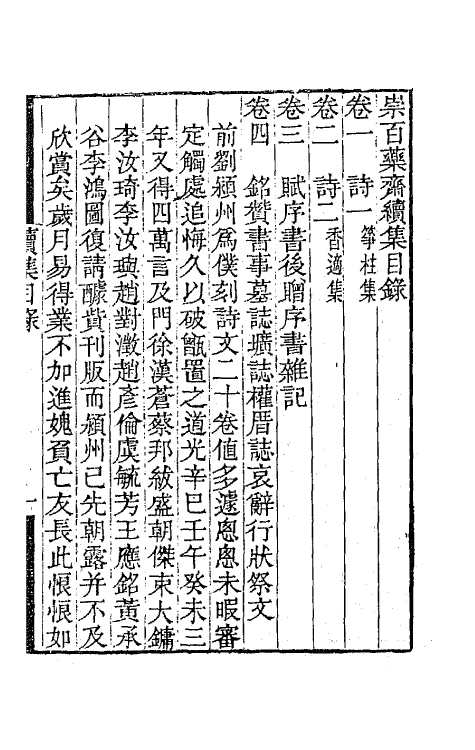 崇百藥齋續集目錄
卷一　詩一　箏柱集
卷二　詩二　香適集
卷三　賦序書後贈序書雜記
卷四　銘贊書事墓誌壙誌權厝誌哀辭行狀祭文
前劉潁州爲僕刻詩文二十卷值多遽悤悤未暇審
定觸處追悔久以破甑置之道光辛巳壬午癸未三
年又得四萬言及門徐漢蒼蔡邦紱盛朝傑束大鏞
李汝琦李汝璵趙對澂趙彥倫虞毓芳王應銘黃承
谷李鴻圖復請醵貲刊版而潁州已先朝露并不及
欣賞矣歲月易得業不加進媿負亡友長此悵悵如
續集目錄
一